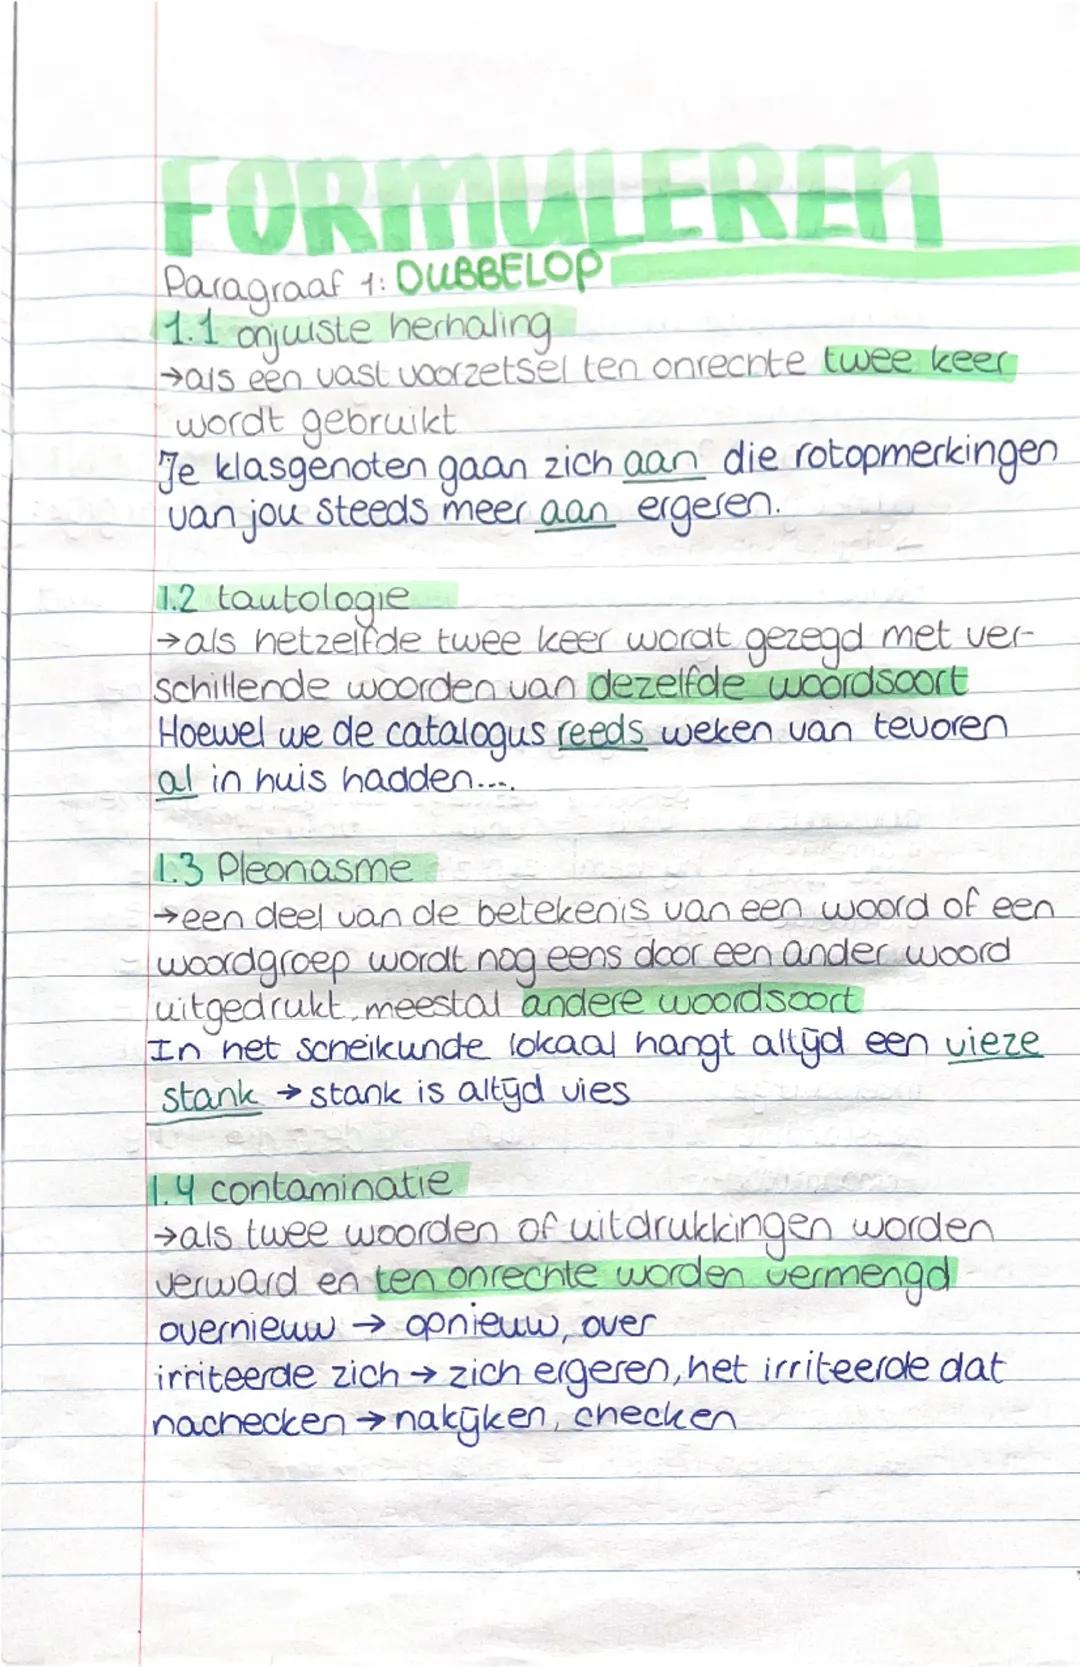 FORMULEREN
Paragraaf 1: DUBBELOP
1.1 onjuiste herhaling
→als een vast voorzetsel ten onrechte twee keer
wordt gebruikt
Je klasgenoten gaan zich aan die rotopmerkingen
van jou steeds meer aan ergeren.
1.2 tautologie
→als hetzelfde twee keer wordt gezegd met ver-
schillende woorden van dezelfde woordsoort
Hoewel we de catalogus reeds weken van tevoren
al in huis hadden....
1.3 Pleonasme
→een deel van de betekenis van een woord of een
woordgroep wordt nog eens door een ander woord
uitgedrukt, meestal andere woordsoort
In het scheikunde lokaal hangt altijd een vieze
stank → stank is altijd vies
1.4 contaminatie
→als twee woorden of uitdrukkingen worden
verward en ten onrechte worden vermengd
overnieuw → opnieuw, over
irriteerde zich → zich ergeren, het irriteerde dat
nachecken → nakijken, checken